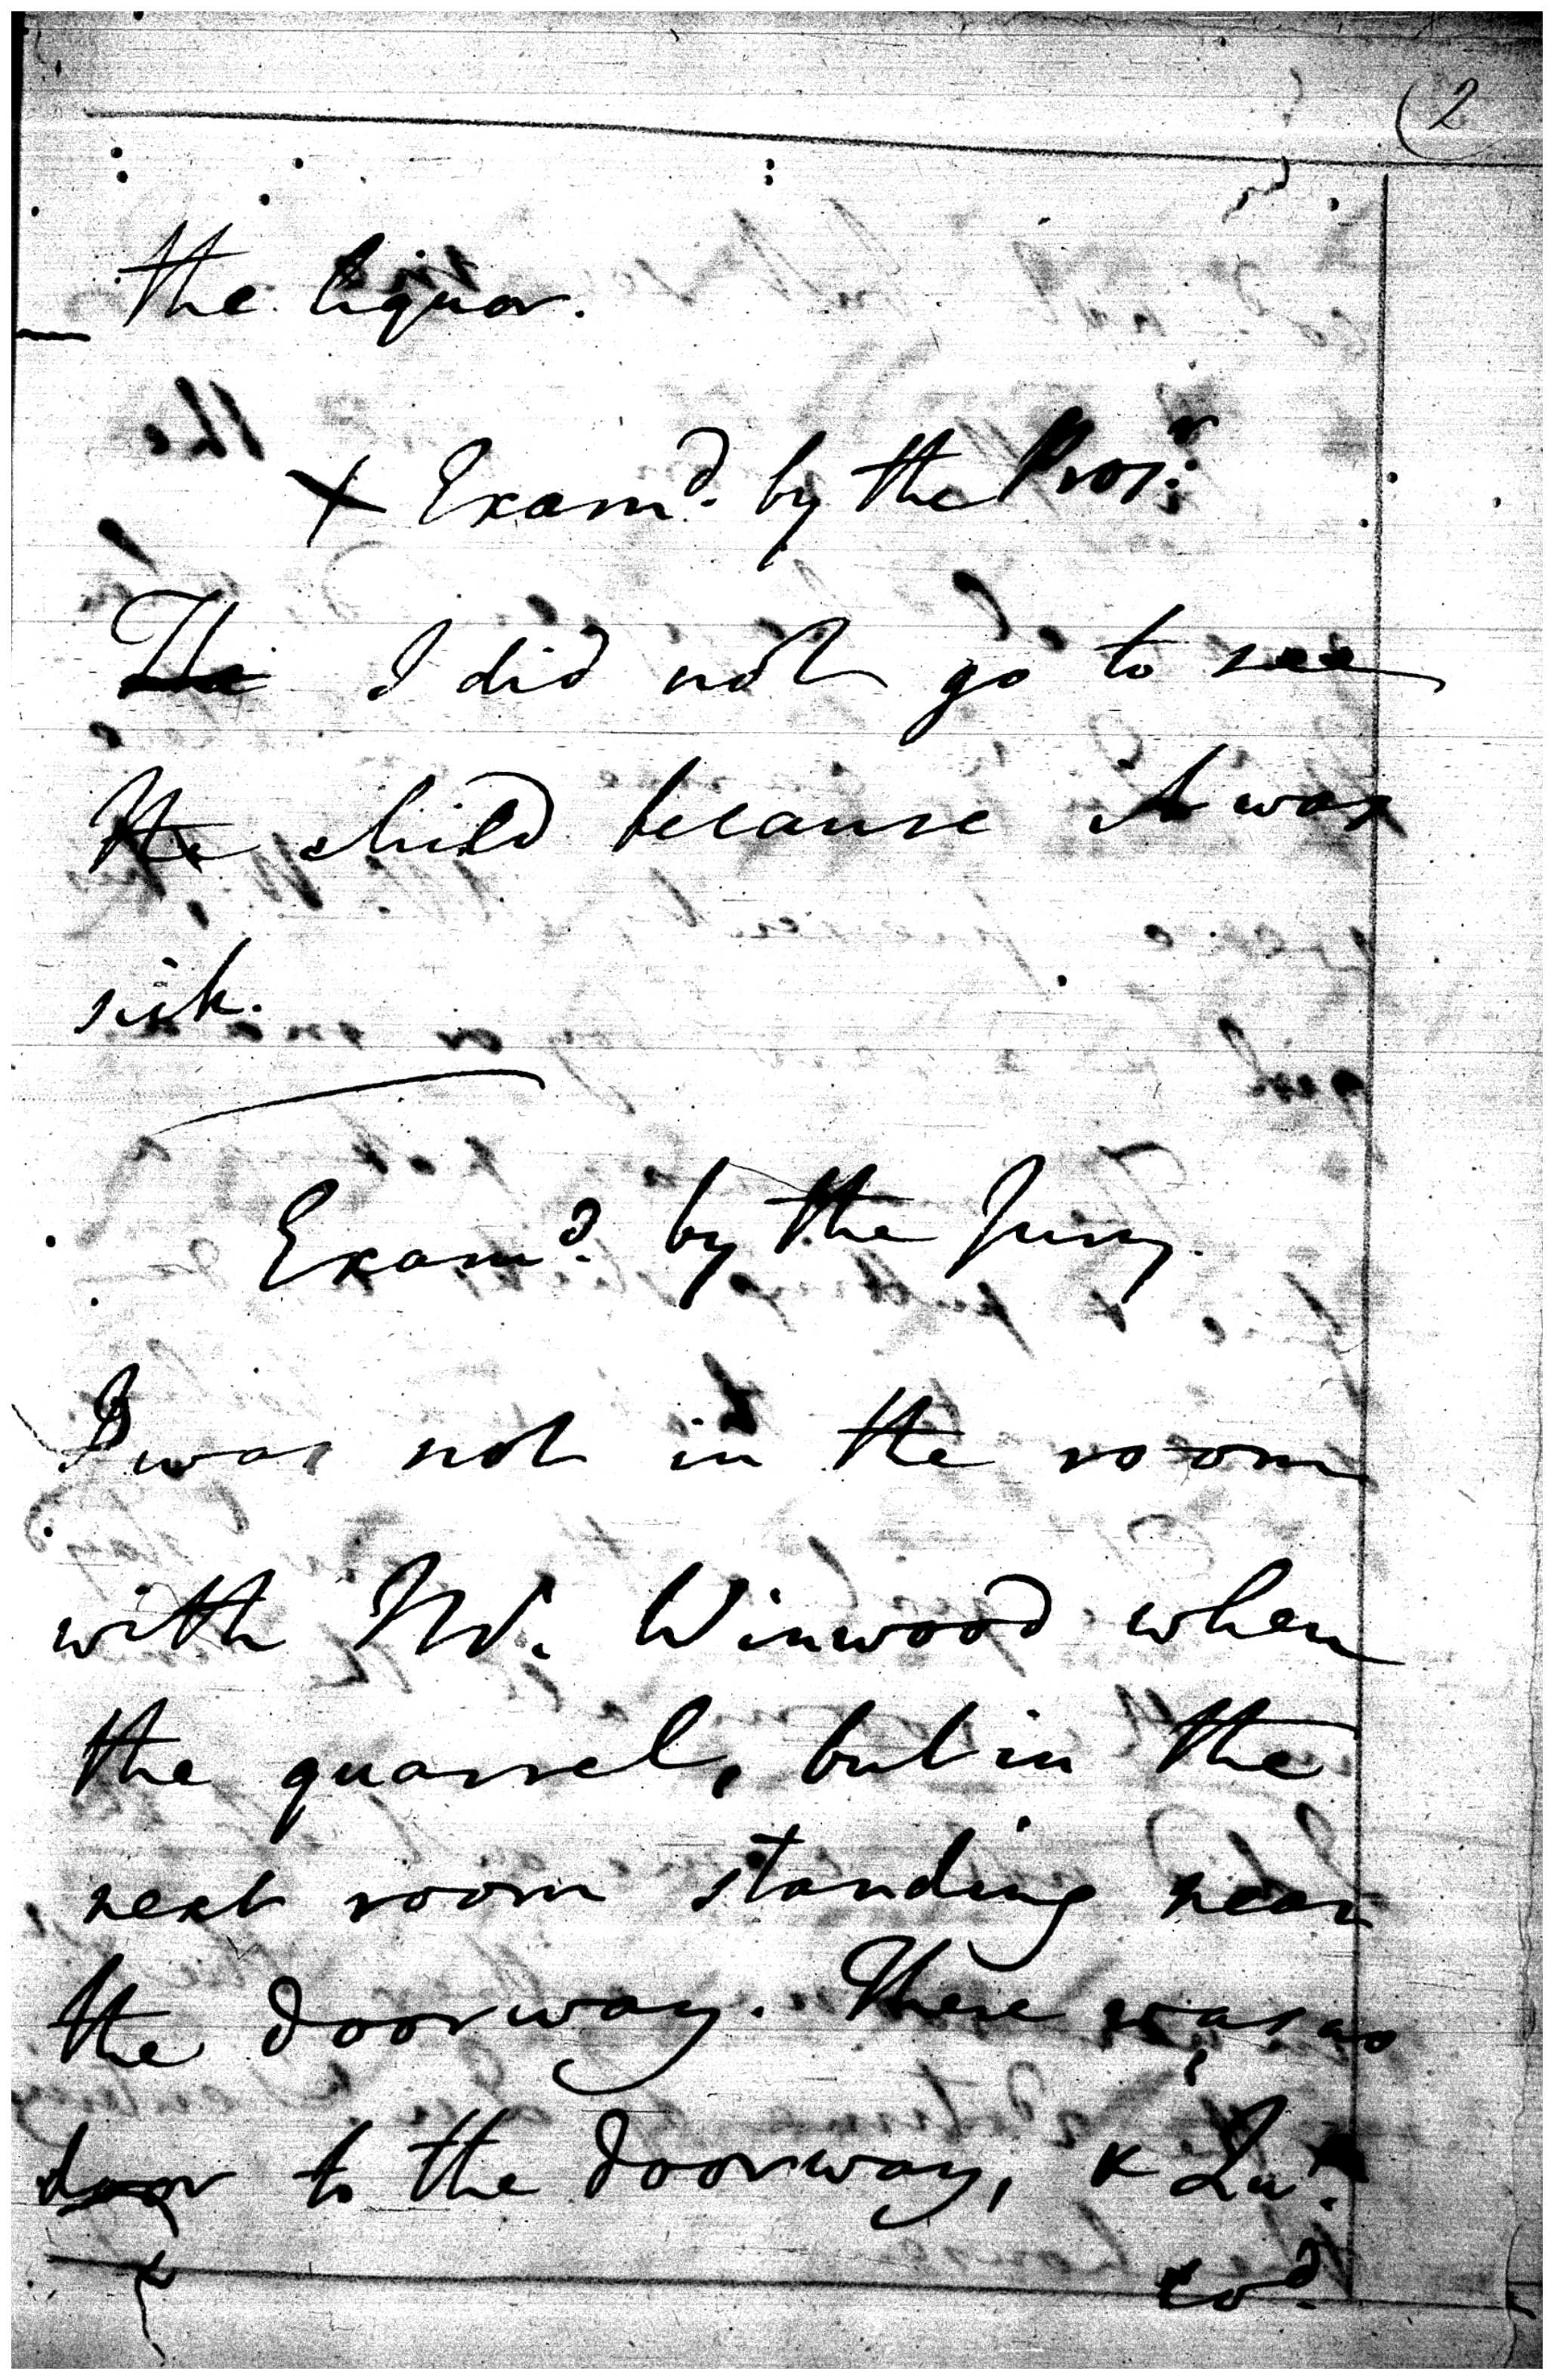 (2
the liquor.
X Examd. by the Prosr.
The I did not go to see
the child because it was
sick.
Examd. by the Jury.
I was not in the room
with Mr. Winwood when
the quarrel, but in the
next room standing near
the doorway. There was no
door to the doorway, &
cod.